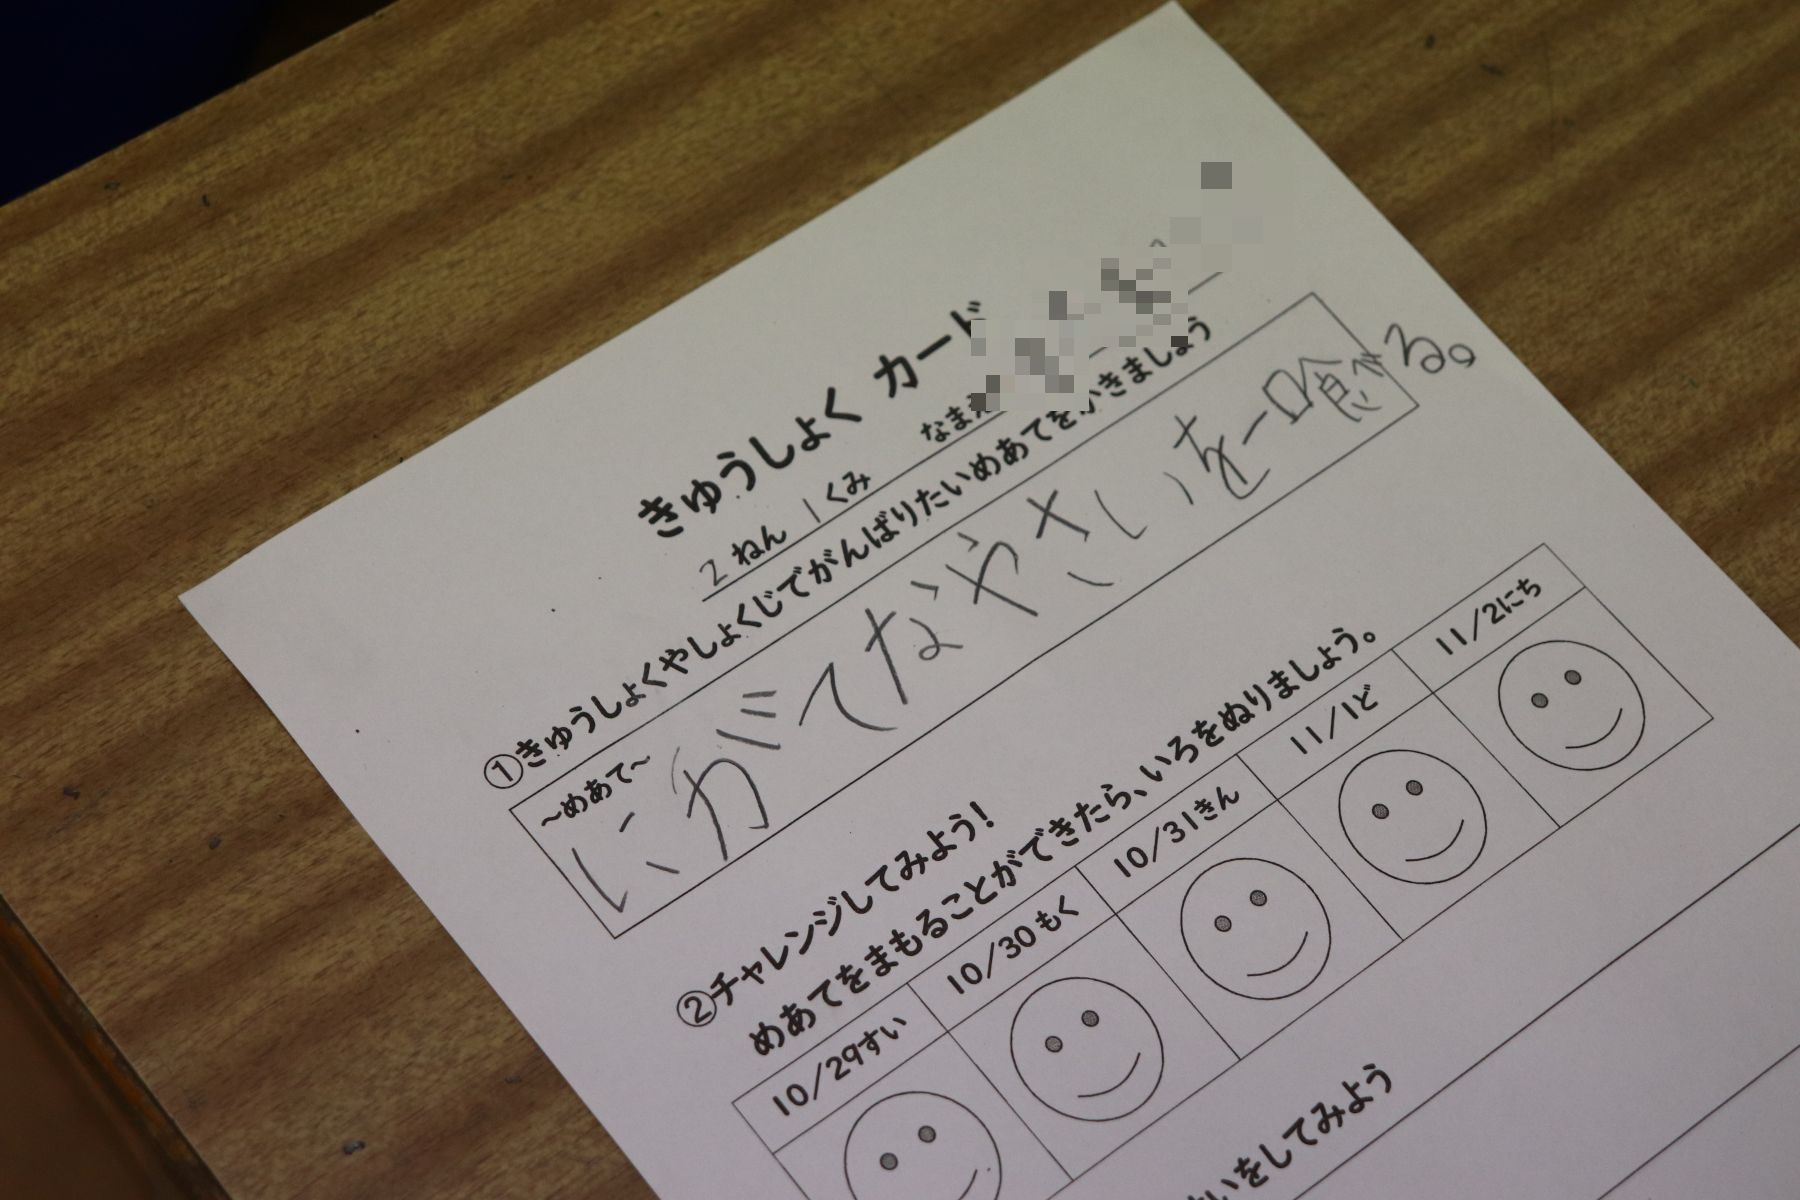 きゅうしょく カード
2 ねん 1 くみ なまえ
①きゅうしょくやしょくじでがんばりたいめあてをかきましょう
~めあて~
にがてなやさいを一口食べる。
②チャレンジしてみよう!
めあてをまもることができたら、いろをぬりましょう。
10/29すい 10/30もく 10/31きん 11/1ど 11/2にち
いをしてみよう